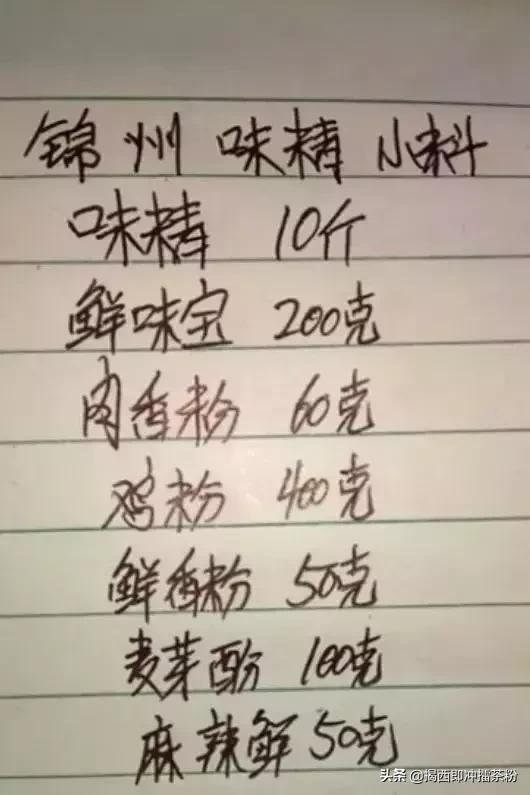 锦州味精小料
味精 10斤
鲜味宝 200克
肉香粉 60克
鸡粉 400克
鲜香粉 50克
麦芽酚 100克
麻辣鲜 50克
头条 @揭西即冲擂茶粉